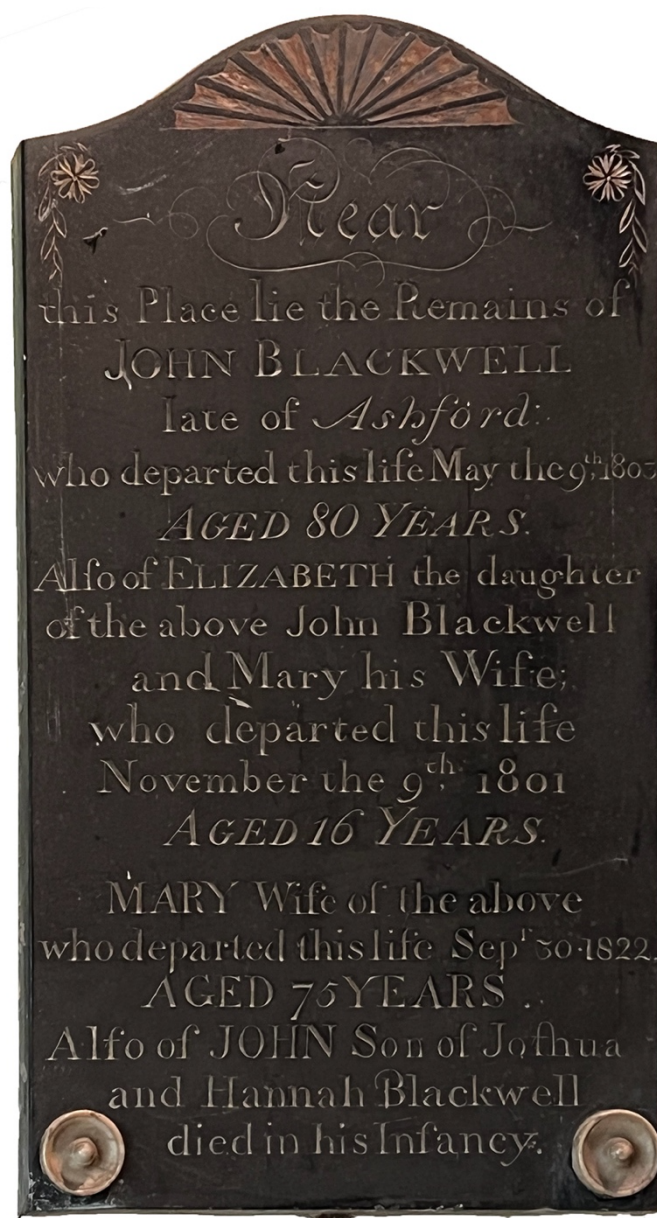 Near
this Place lie the Remains of
JOHN BLACKWELL
late of Ashford:
who departed this life May the 9th, 1803
AGED 80 YEARS.
Alſo of ELIZABETH the daughter
of the above John Blackwell
and Mary his Wife;
who departed this life
November the 9th. 1801
AGED 16 YEARS.
MARY Wife of the above
who departed this life Sept 30 1822.
AGED 75 YEARS.
Alſo of JOHN Son of Joſhua
and Hannah Blackwell
died in his Infancy.